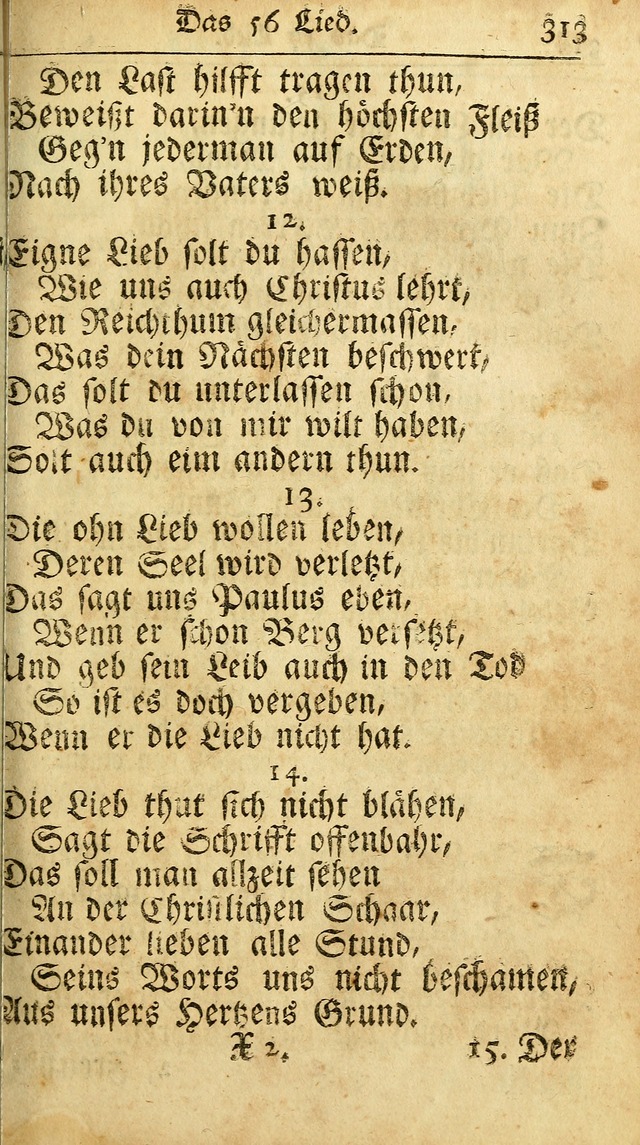 Das 56 Lied. 313
Den Last hilfft tragen thun,
Beweißt darin'n den höchsten Fleiß
Geg'n jederman auf Erden,
Nach ihres Vaters weiß.
12.
Eigne Lieb solt du hassen,
Wie uns auch Christus lehrt,
Den Reichthum gleichermassen,
Was dein Nächsten beschwert,
Das solt du unterlassen schon,
Was du von mir wilt haben,
Solt auch eim andern thun.
13.
Die ohn Lieb wollen leben,
Deren Seel wird verletzt,
Das sagt uns Paulus eben,
Wenn er schon Berg versetzt,
Und geb sein Leib auch in den Tod
So ist es doch vergeben,
Wenn er die Lieb nicht hat.
14.
Die Lieb thut sich nicht blähen,
Sagt die Schrifft offenbahr,
Das soll man allzeit sehen
An der Christlichen Schaar,
Einander lieben alle Stund,
Seins Worts uns nicht beschamen,
Aus unsers Hertzens Grund.
X 2. 15. Der